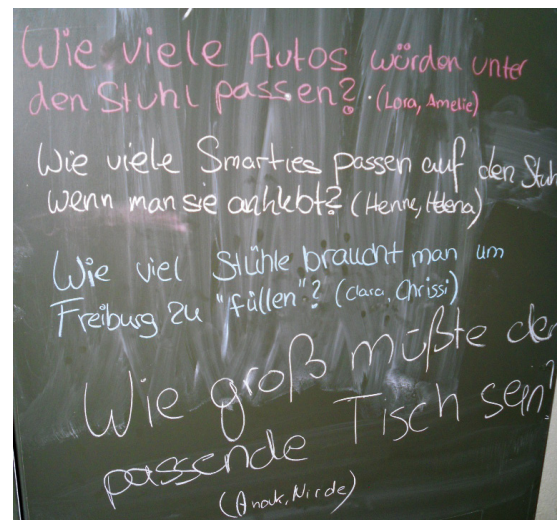 Wie viele Autos würden unter
den Stuhl passen? (Lora, Amelie)
Wie viele Smarties passen auf den Stuh
wenn man sie anklebt? (Henne, Helena)
Wie viel Stühle braucht man um
Freiburg zu "füllen"? (Clara, Chrissi)
Wie groß müßte der
passende Tisch sein?
(Anouk,